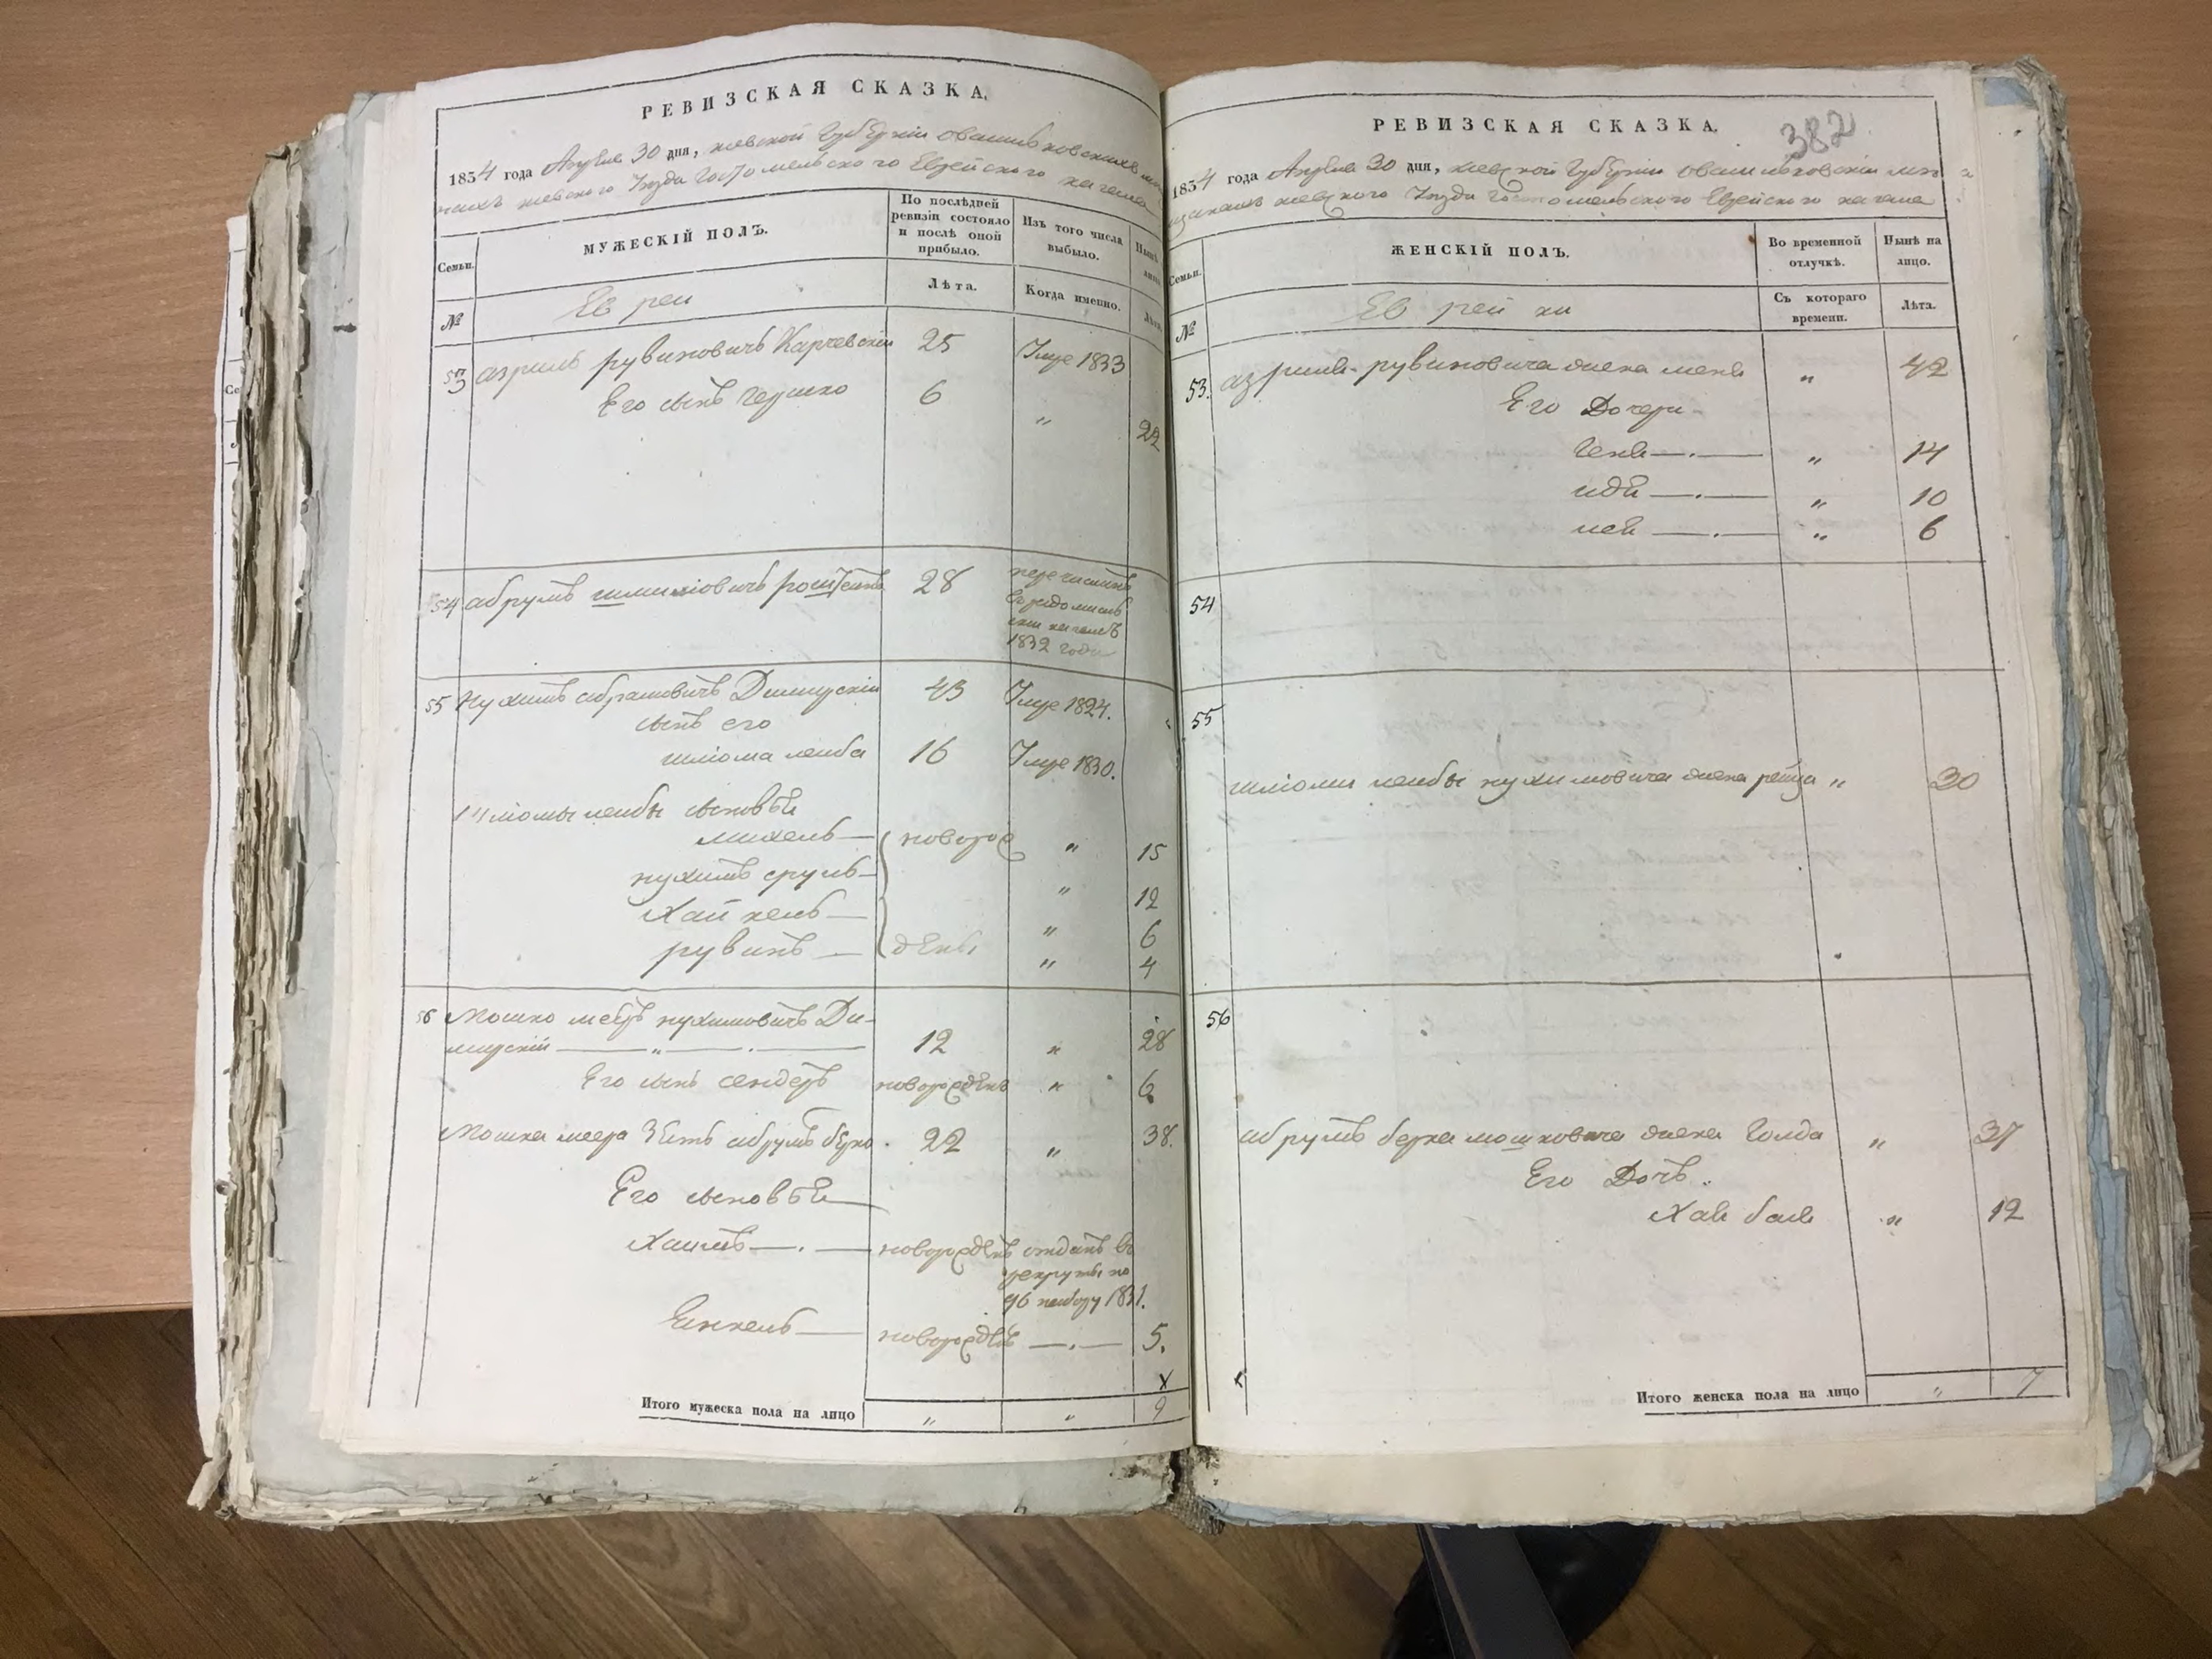 РЕВИЗСКАЯ СКАЗКА.
1834 года Апреля 30 дня, киевской Губернии
киевского Уезда Гостомельского Еврейского кагала
Семьи.
МУЖЕСКІЙ ПОЛЪ.
По послѣдней ревизіи состояло и послѣ оной прибыло.
Изъ того числа выбыло.
№
Евреи
Лѣта.
Когда именно.
53 азриль рувиновичъ Карчевскій 25 Умре 1833
Его сынъ Гершко 6 " 22
54 абрумъ 28 перечисленъ
1832 года
55 Нухимъ абрамовичъ Димирскій 43 Умре 1824.
сынъ его
шліома лейба 16 Умре 1830.
Шліомы лейбы сыновьи
михель— новорож " 15
нухимъ сруль— " 12
Хайкель— " 6
рувинъ— дены " 4
56 Мошко мееръ нухимовичъ Ди-
мирскій —„—.— 12 " 28
Его сынъ сендеръ новорожденъ " 6
Мошка меера зять абрумъ берко. 22 " 38.
Его сыновьи—
Хаимъ—.— новорожденъ отданъ въ
рекруты по
96 набору 1831.
Еинкель— новорожденъ —.— 5.
х
Итого мужеска пола на лицо " " 9
РЕВИЗСКАЯ СКАЗКА.
382
1834 года Апреля 30 дня, киевской Губернии
киевского Уезда Гостомельского Еврейского кагала
Семьи.
ЖЕНСКІЙ ПОЛЪ.
Во временной отлучкѣ.
Нынѣ на лицо.
№
Еврейки
Съ котораго времени.
Лѣта.
53. азриля рувиновича жена " 42
Его Дочери
Геня—.— " 14
—.— " 10
—.— " 6
54
55
шліомы лейбы нухимовича жена рейза " 30
56
абрумъ берка мошковича жена Голда " 37
Его Дочь.
Хая бася " 12
Итого женска пола на лицо " 7